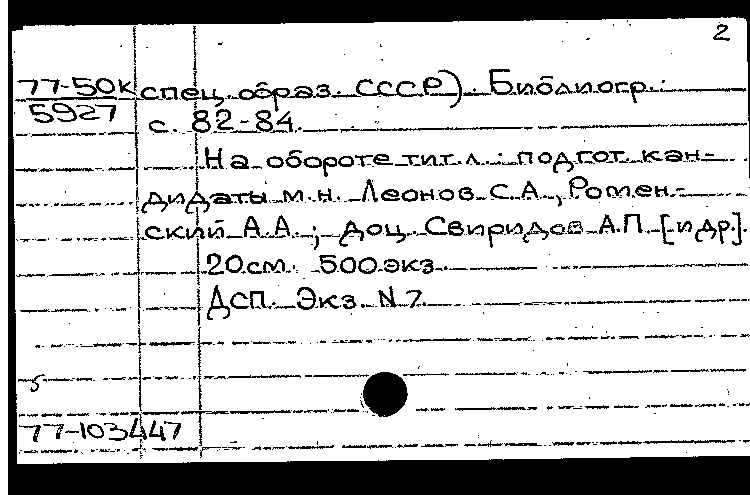 2
77-50к спец. образ. СССР). Библиогр.:
5927 с. 82-84.
На обороте тит. л.: подгот. кан-
дидаты м.н. Леонов С.А., Ромен-
ский А.А.; доц. Свиридов А.П. [и др.].
20 см. 500 экз.
ДСП. Экз. N 7.
5
77-103447